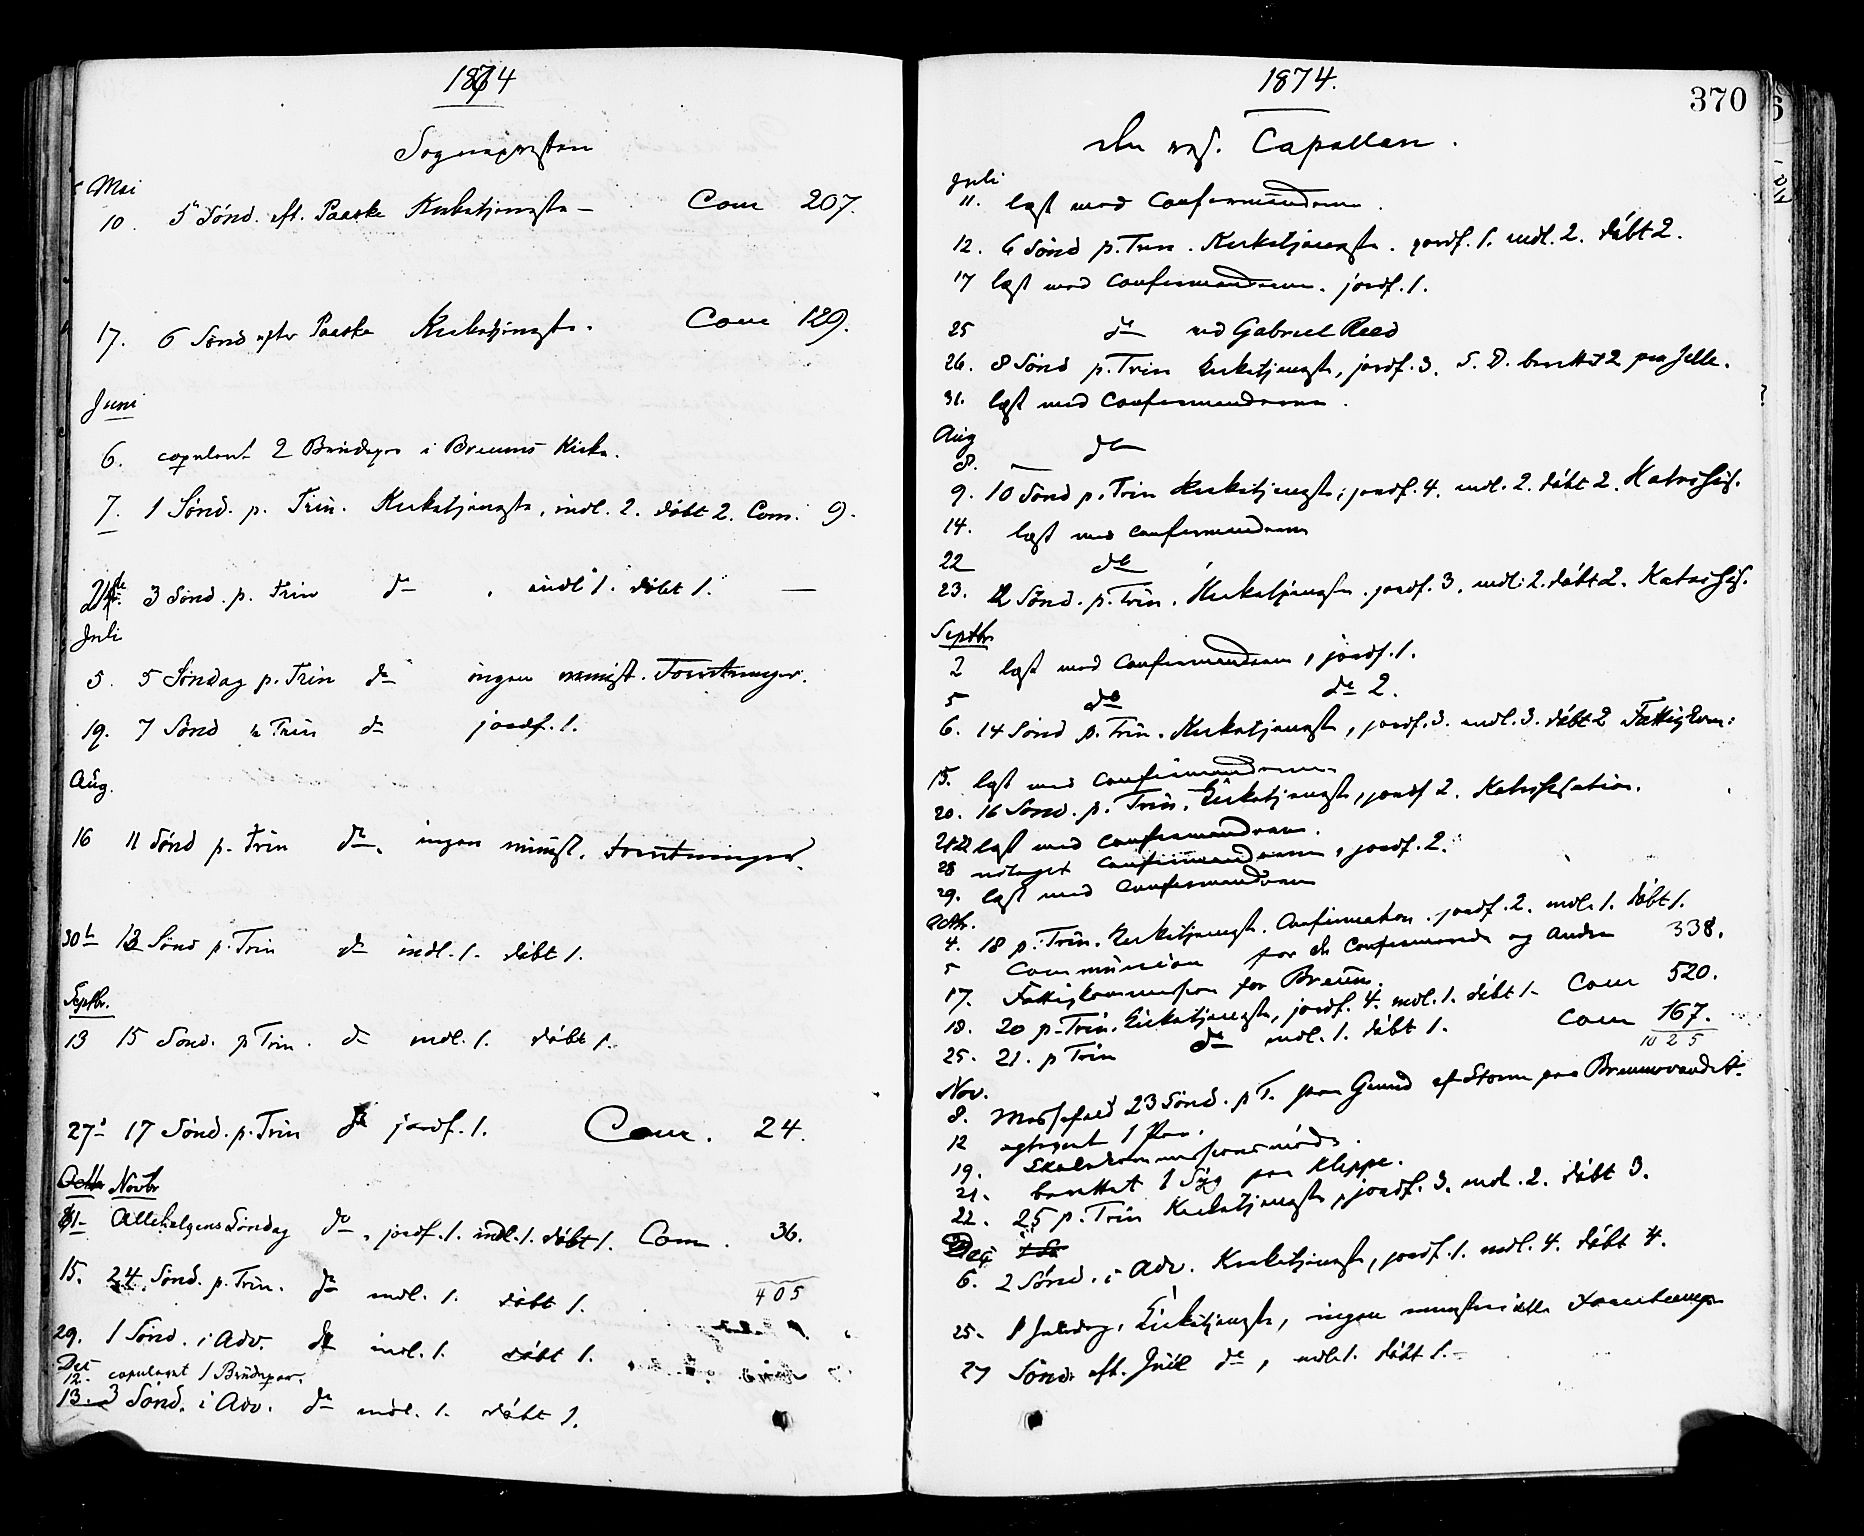 1874
Sognepresten
Mai
10. 5 Sönd. eft. Paaske Kirketjeneste – Com 207.
17. 6 Sönd efter Paaske Kirketjeneste. Com 129.
Juni
6. copuleret 2 Brudepar i Breums Kirke.
7. 1 Sönd. p. Trin. Kirketjeneste, indl. 2. döbt 2. Com. 9.
21de 3 Sönd. p. Trin do, indl 1. döbt 1. —
Juli
5. 5 Söndag p. Trin do ingen minist. Forretninger.
19. 7 Sönd p Trin do jordf. 1.
Aug.
16 11 Sönd p. Trin do, ingen minist. Forretninger.
30t 13 Sönd p. Trin do indl. 1. döbt 1.
Septbr.
13 15 Sönd. p Trin. do indl. 1. döbt 1.
27d 17 Sönd. p. Trin do jordf. 1. Com. 24.
Octbr Novbr
1 Allehelgens Söndag do, jordf. 1. indl. 1. döbt 1. Com. 36.
15. 24 Sönd. p. Trin. do indl. 1. döbt 1. 405
29. 1 Sönd. i Adv. do indl. 1. döbt 1.
Dec
12. copuleret 1 Brudepar.
13. 3 Sönd. i Adv. do indl. 1. döbt 1.
1874. 370
den res. Capellan.
Juli
11. læst med Confirmanderne.
12. 6 Sönd p. Trin. Kirketjeneste. jordf. 1. indl. 2. döbt 2.
17 læst med Confirmanderne. jordf. 1.
25 do ved Gabriel Reed
26. 8 Sönd p. Trin Kirketjeneste, jordf. 3. S. D. berettet 2 paa
31. læst med Confirmanderne.
Aug
8. — do
9. 10 Sönd p. Trin Kirketjeneste, jordf. 4. indl. 2. döbt 2. Katechis.
14. læst med Confirmanderne
22 do
23. 12 Sönd. p. Trin. Kirketjenesten. jordf. 3. indl. 2. döbt 2. Katechis.
Septbr
2 læst med Confirmanderne, jordf. 1.
5 do do 2.
6. 14 Sönd p. Trin. Kirketjeneste, jordf. 3. indl. 3. döbt 2 Fattigkom:
15. læst med Confirmanderne
20. 16 Sönd. p. Trin. Kirketjeneste, jordf 2. Katechisation.
læst med Confirmanderne.
28 Confirmanderne, jordf. 2.
29. læst med Confirmanderne
Octbr.
4. 18 p. Trin. Kirketjenest. Confirmation. jordf. 2. indl. 1. döbt 1.
5 Communion for de Confirmerede og Andre 338.
17. Fattigkommission for Breum.
18. 20 p. Trin. Kirketjeneste, jordf. 4. indl. 1. döbt 1. Com 520.
25. 21. p Trin do indl. 1. döbt 1. Com 167.
1025
Nov.
8. Messefald 23 Sönd. p T. paa Grund af Storm paa Breumsvandet.
12 1 Par.
19. Skolekommissionsmöde.
21. berettet 1 Syg paa Kleppe.
22. 25 p. Trin Kirketjeneste, jordf. 3. indl. 2. döbt 3.
Dec
6. 2 Sönd. i Adv. Kirketjeneste, jordf. 1. indl. 4. döbt 4.
25. 1 Juledag, Kirketjeneste, ingen ministerielle Forretninger
27 Sönd. eft. Juul do, indl. 1. döbt 1. –